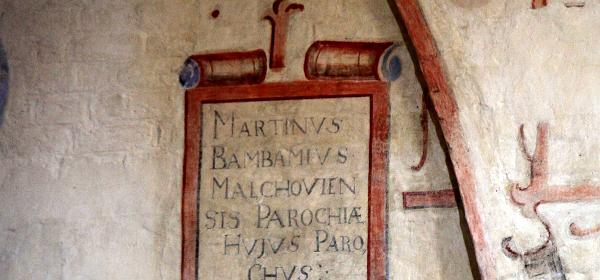 MARTINVS
BAMBAMIVS
MALCHOVIEN
SIS PAROCHIÆ
HUJUS PARO,
CHVS.